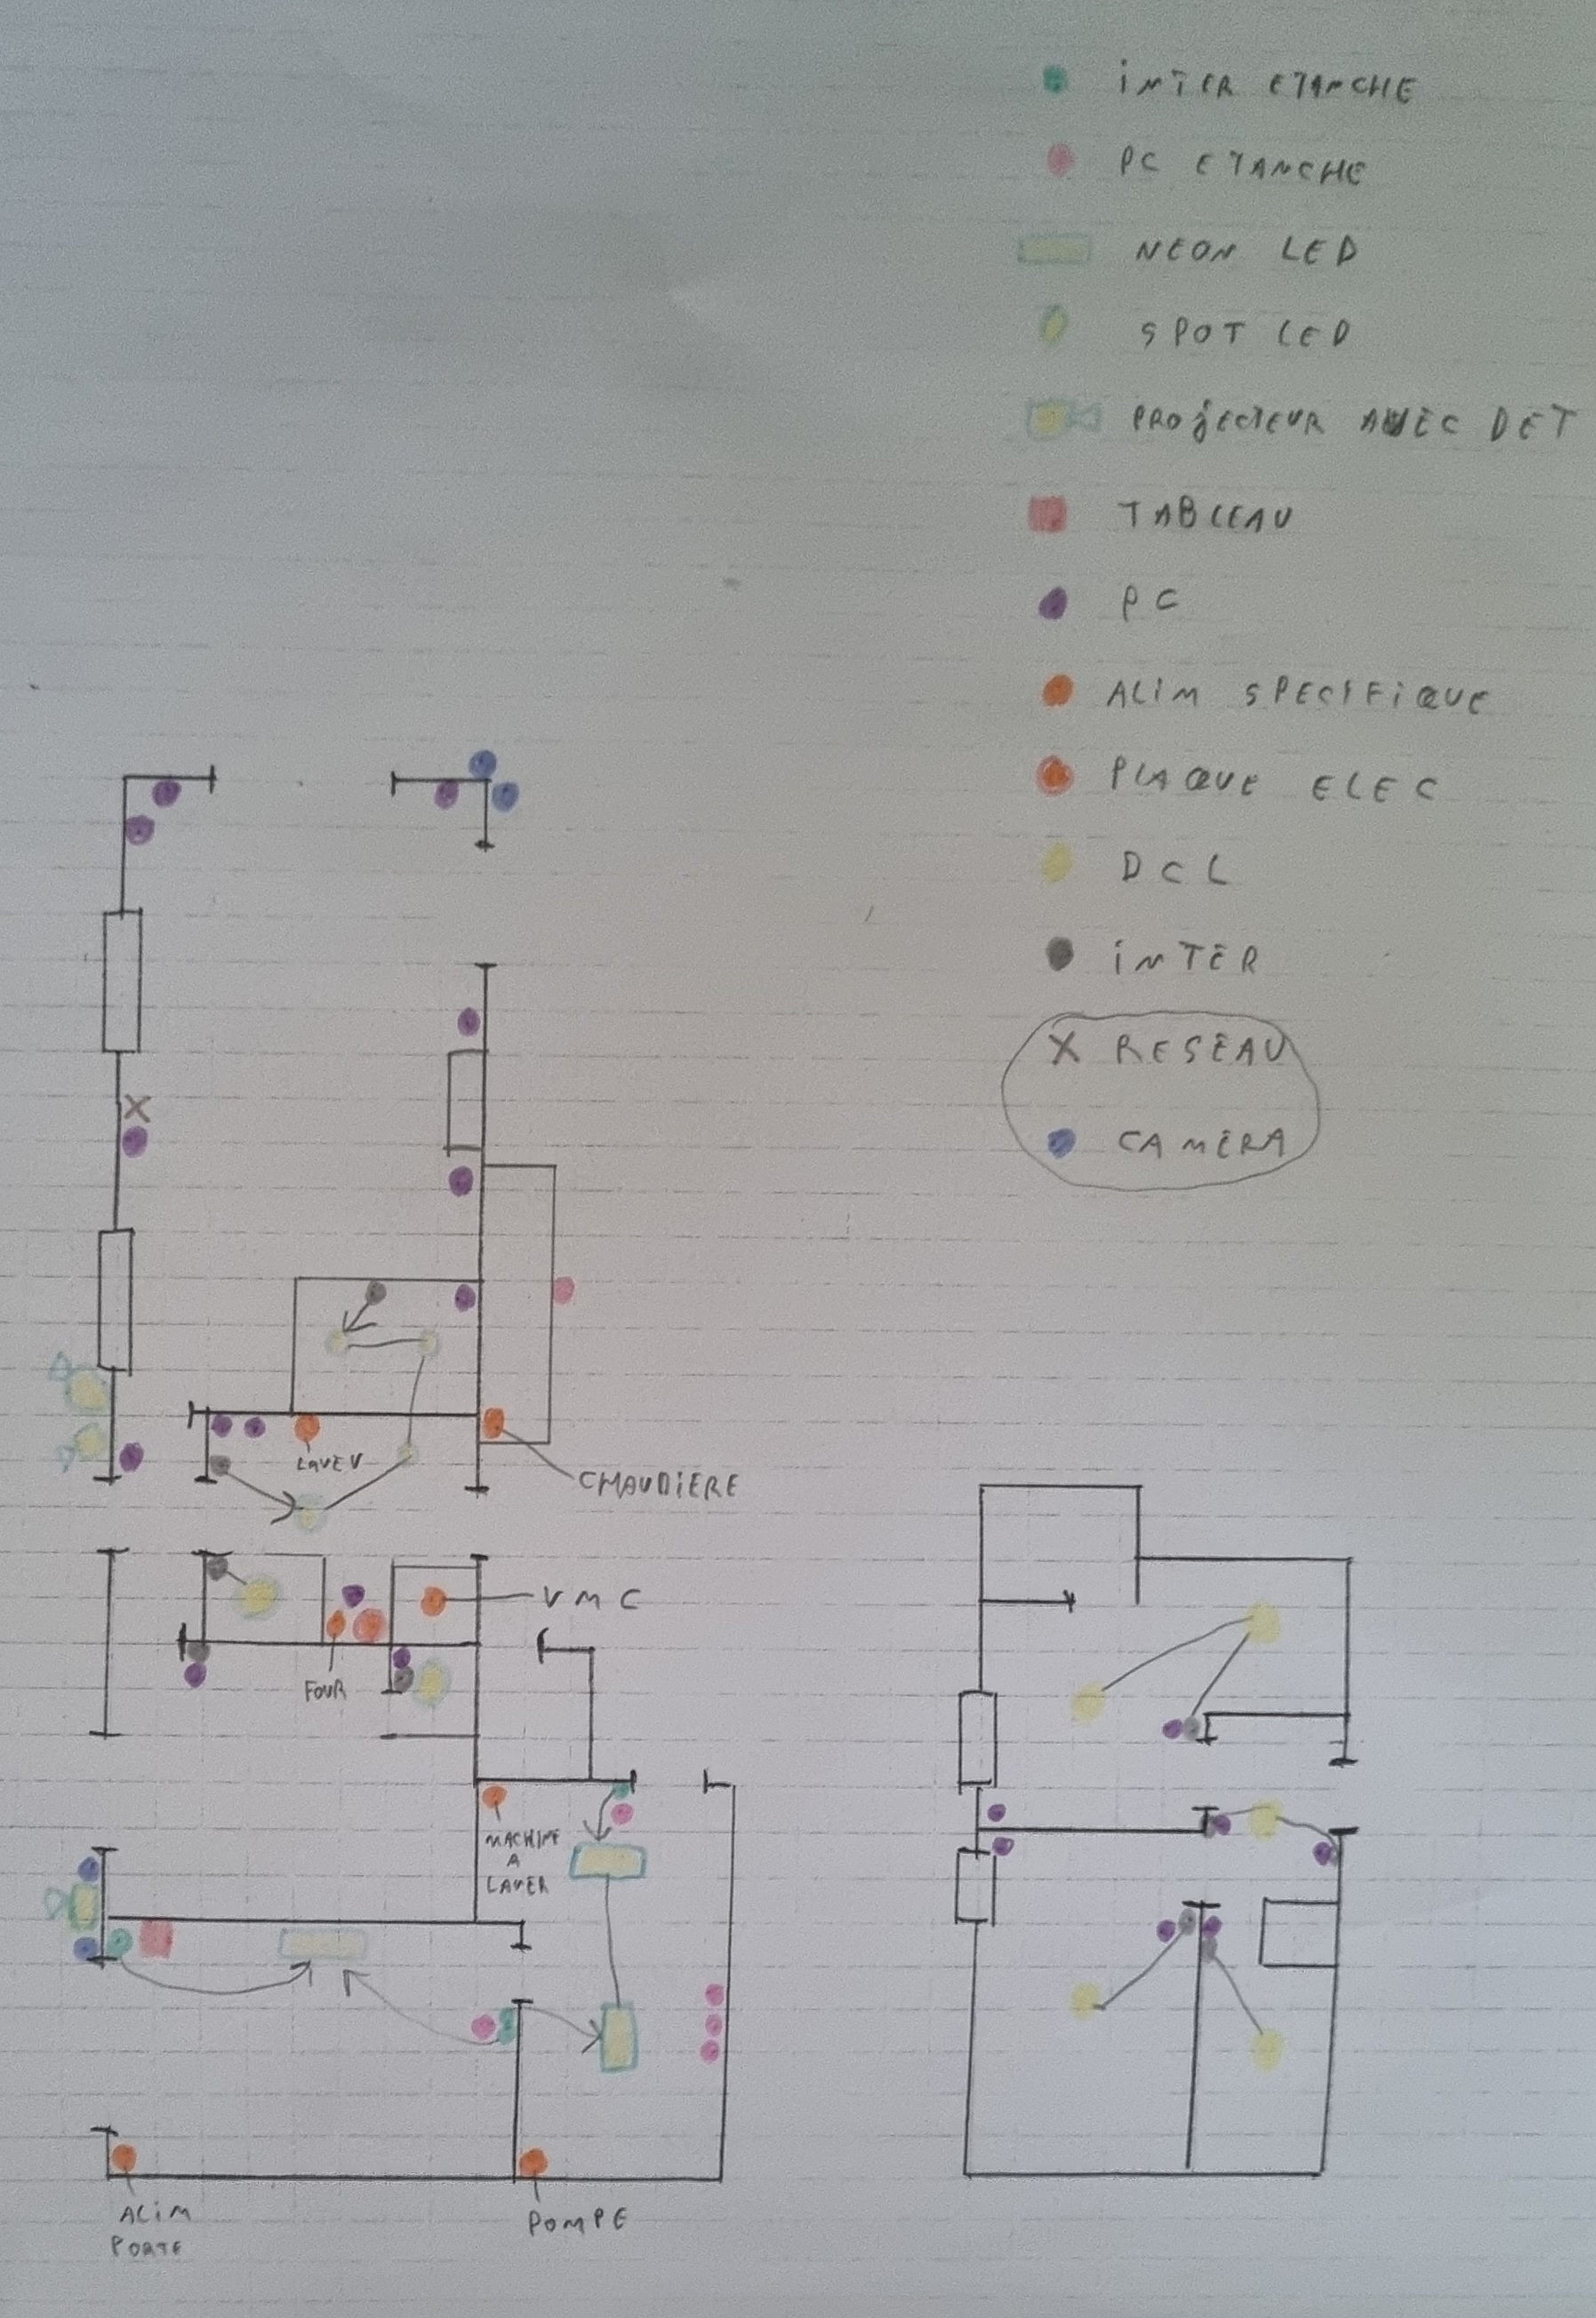 iNTER ETANCHE
PC ETANCHE
NEON LED
SPOT LED
PROjECTEUR AVEC DET
TABLEAU
PC
ALiM SPECIFiQUE
PLAQUE ELEC
DCL
iNTER
X RESEAU
CAMERA
X
LAVE V
CHAUDiERE
VMC
FOUR
MACHINE
A
LAVER
ALiM
PORTE
POMPE